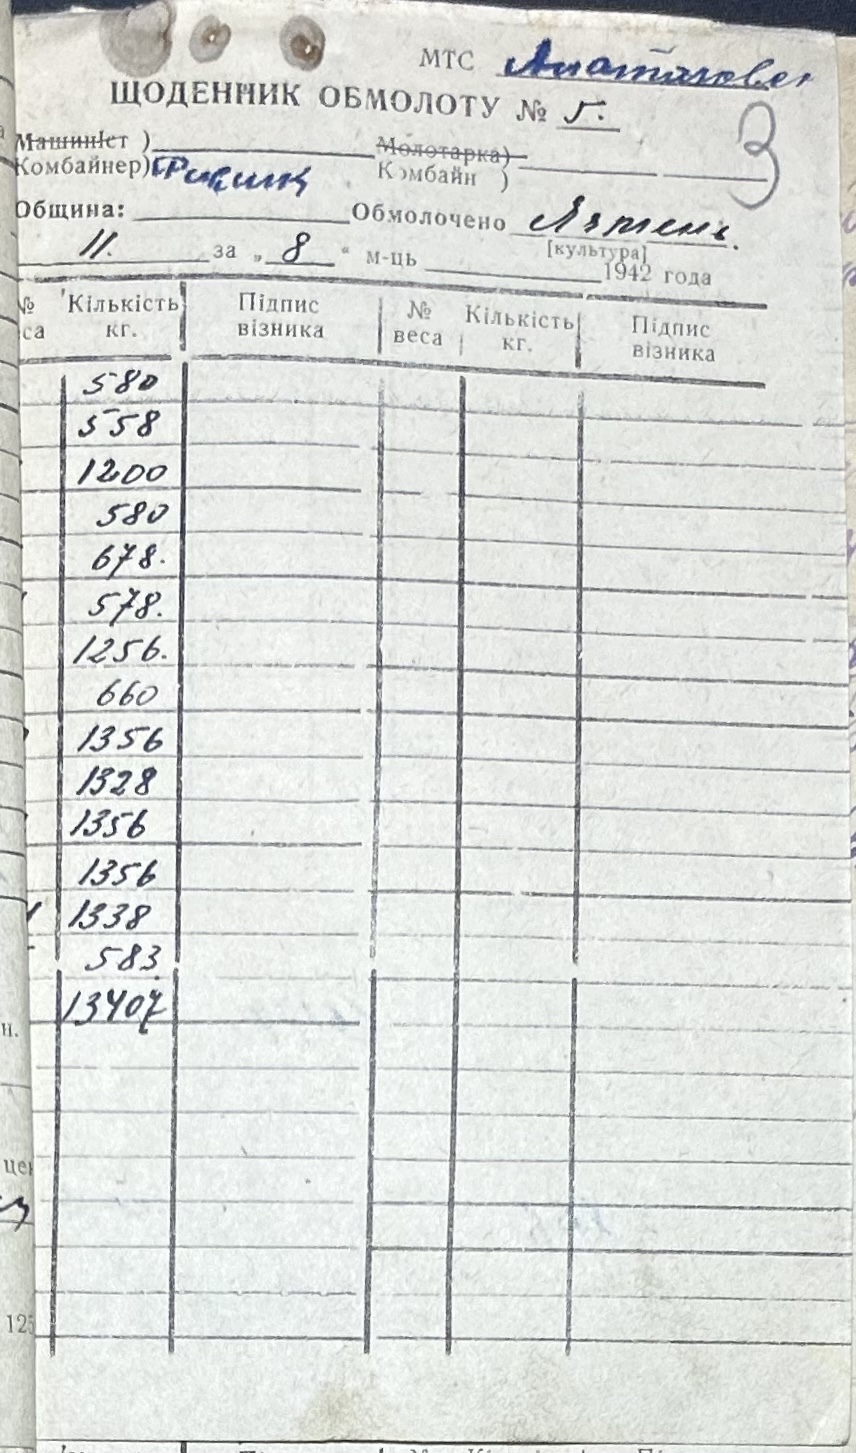 МТС
ЩОДЕННИК ОБМОЛОТУ № 5.
3
Машиніст ) Молотарка)
Комбайнер) Комбайн )
Община: Обмолочено Ячмень.
[культура]
11. за „ 8 “ м-ць 1942 года
№ Кількість Підпис № Кількість Підпис
са кг. візника веса кг. візника
580
558
1200
580
678.
578.
1256.
660
1356
1328
1356
1356
1338
583
13407
н.
цен
125